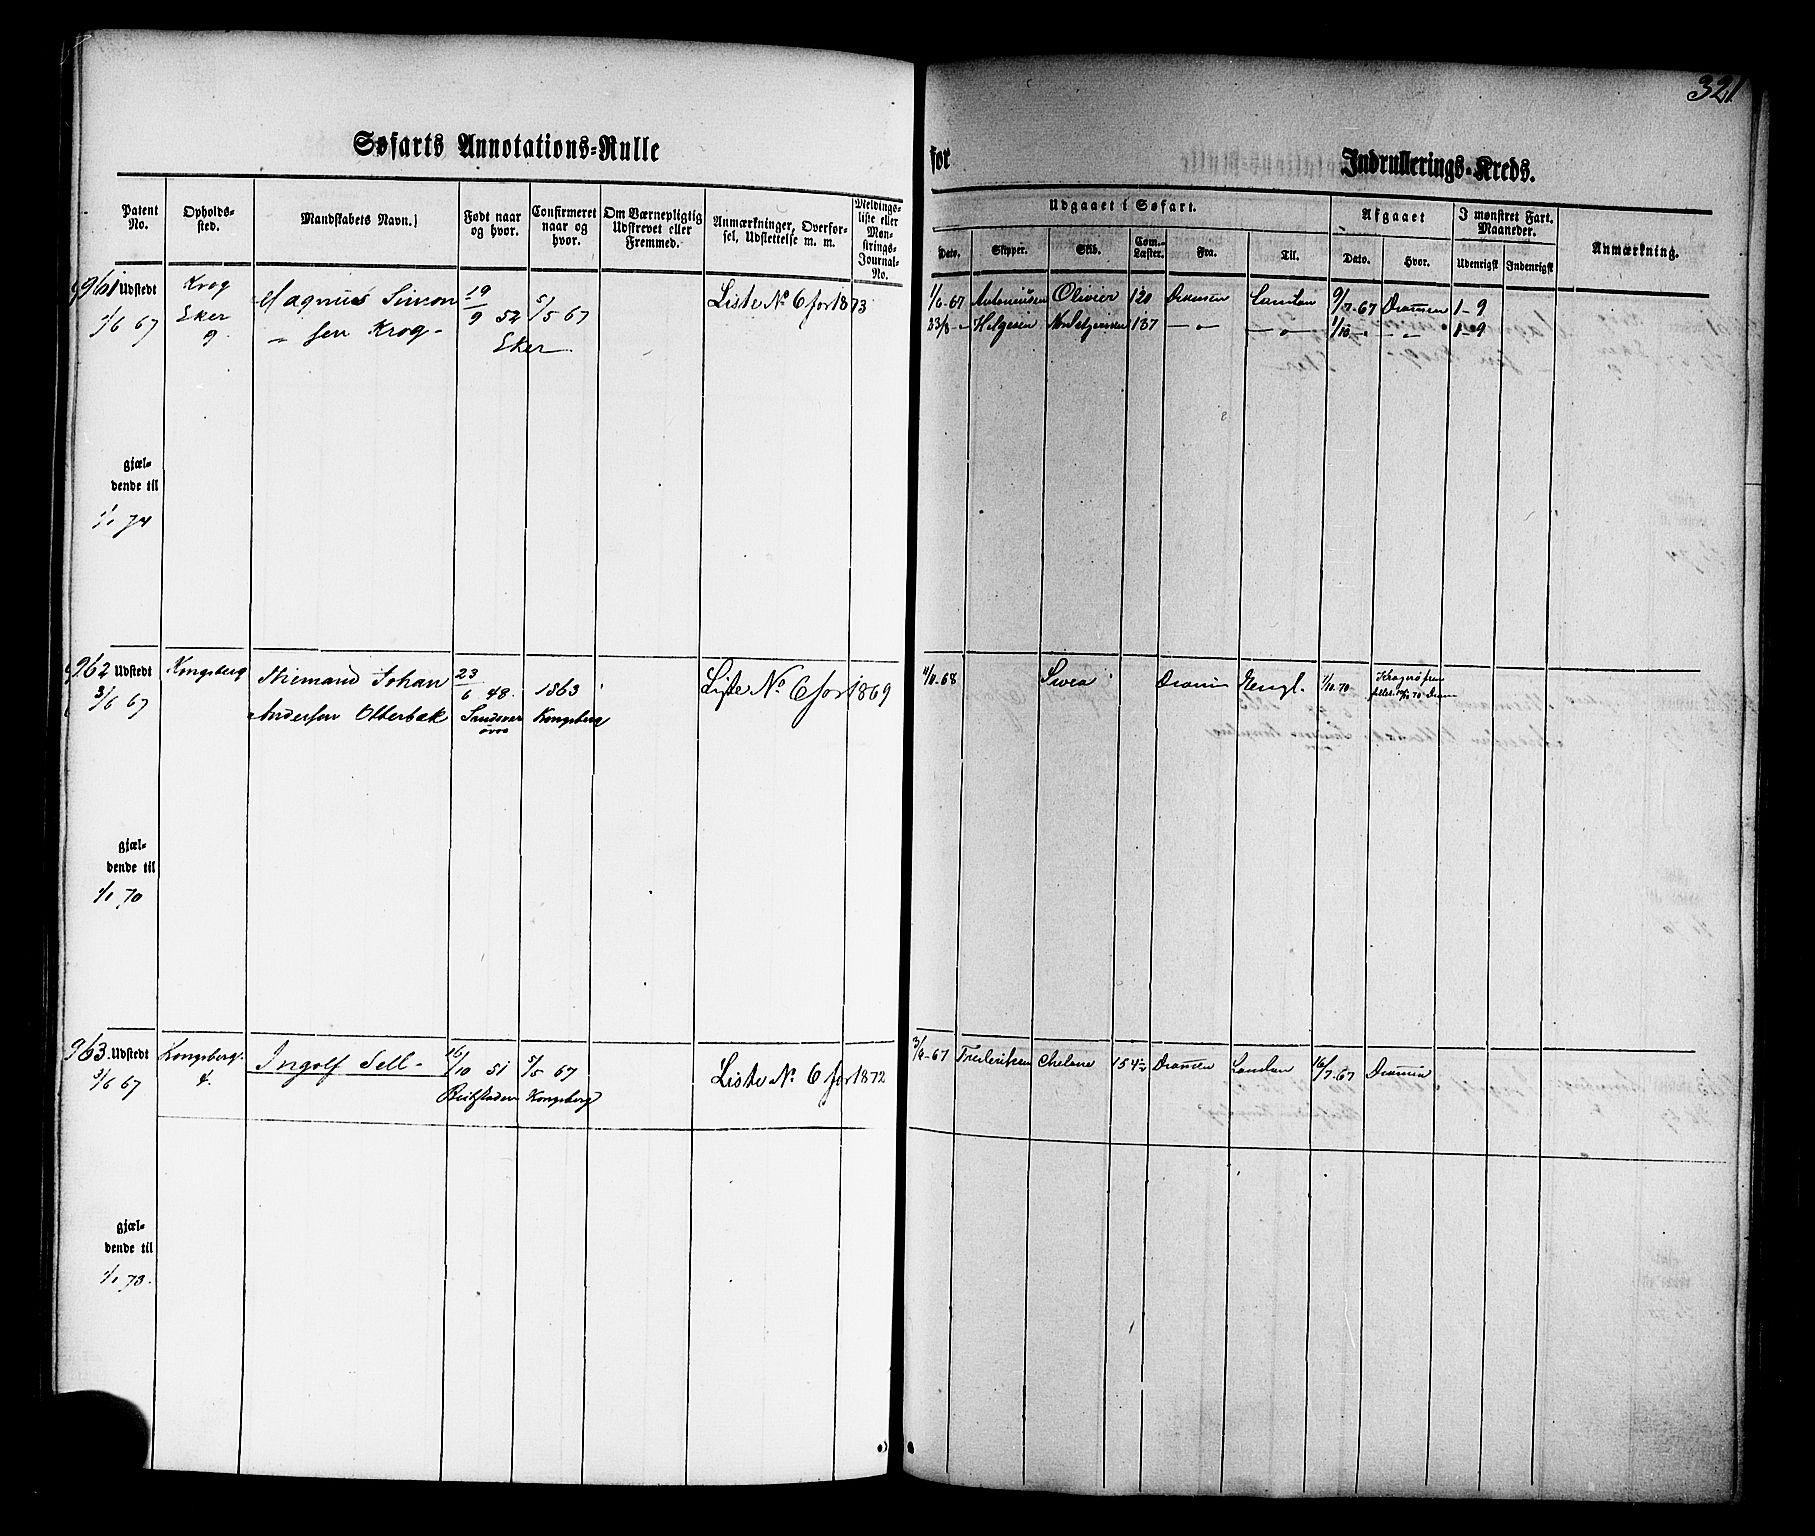 321
Søfarts Annotations-Rulle
for
Indrullerings-Kreds.
Patent No.
Opholdssted.
Mandskabets Navn.
Født naar og hvor.
Confirmeret naar og hvor.
Om Værnepligtig Udskrevet eller Fremmed.
Anmærkninger, Overførsel, Udslettelse m. m.
Meldingsliste eller Mønstrings-Journal-No.
Udgaaet i Søfart.
Afgaaet
I mønstret Fart. Maaneder.
Anmærkning.
Dato. Skipper. Skib. Com.-Læster. Fra. Til. Dato. Hvor. Udenrigst Indenrigst
961 Udstedt 1/6 67
Krog Eker 9
Magnus Simon
sen Krog
19/9 52 Eker
5/5 67
Liste No 6 for 1873
1/6-67 Antoniusen Olivier 120 Dramen London 9/7-67 Dramen 1-9
23/8 - Helgesen 137 - " - - " - 1/10 - - " - 1-9
gjældende til
1/1 74
962 Udstedt 3/6 67
Kongsberg
Niemand Johan
Andersen Otterbæk
23/6 48. Sandsver
1863 Kongsberg
Liste No 6 for 1869
68 Svea Dramn Engl. 70
gjældende til
1/1 70
963. Udstedt 3/6 67
Kongsberg. 4.
Ingolf Sell
16/10 51
5/5 67 Kongsberg
Liste No. 6 for 1872
3/6-67 Frederiksen 154 Dramen London 16/7-67 Dramen
gjældende til
1/1 73.